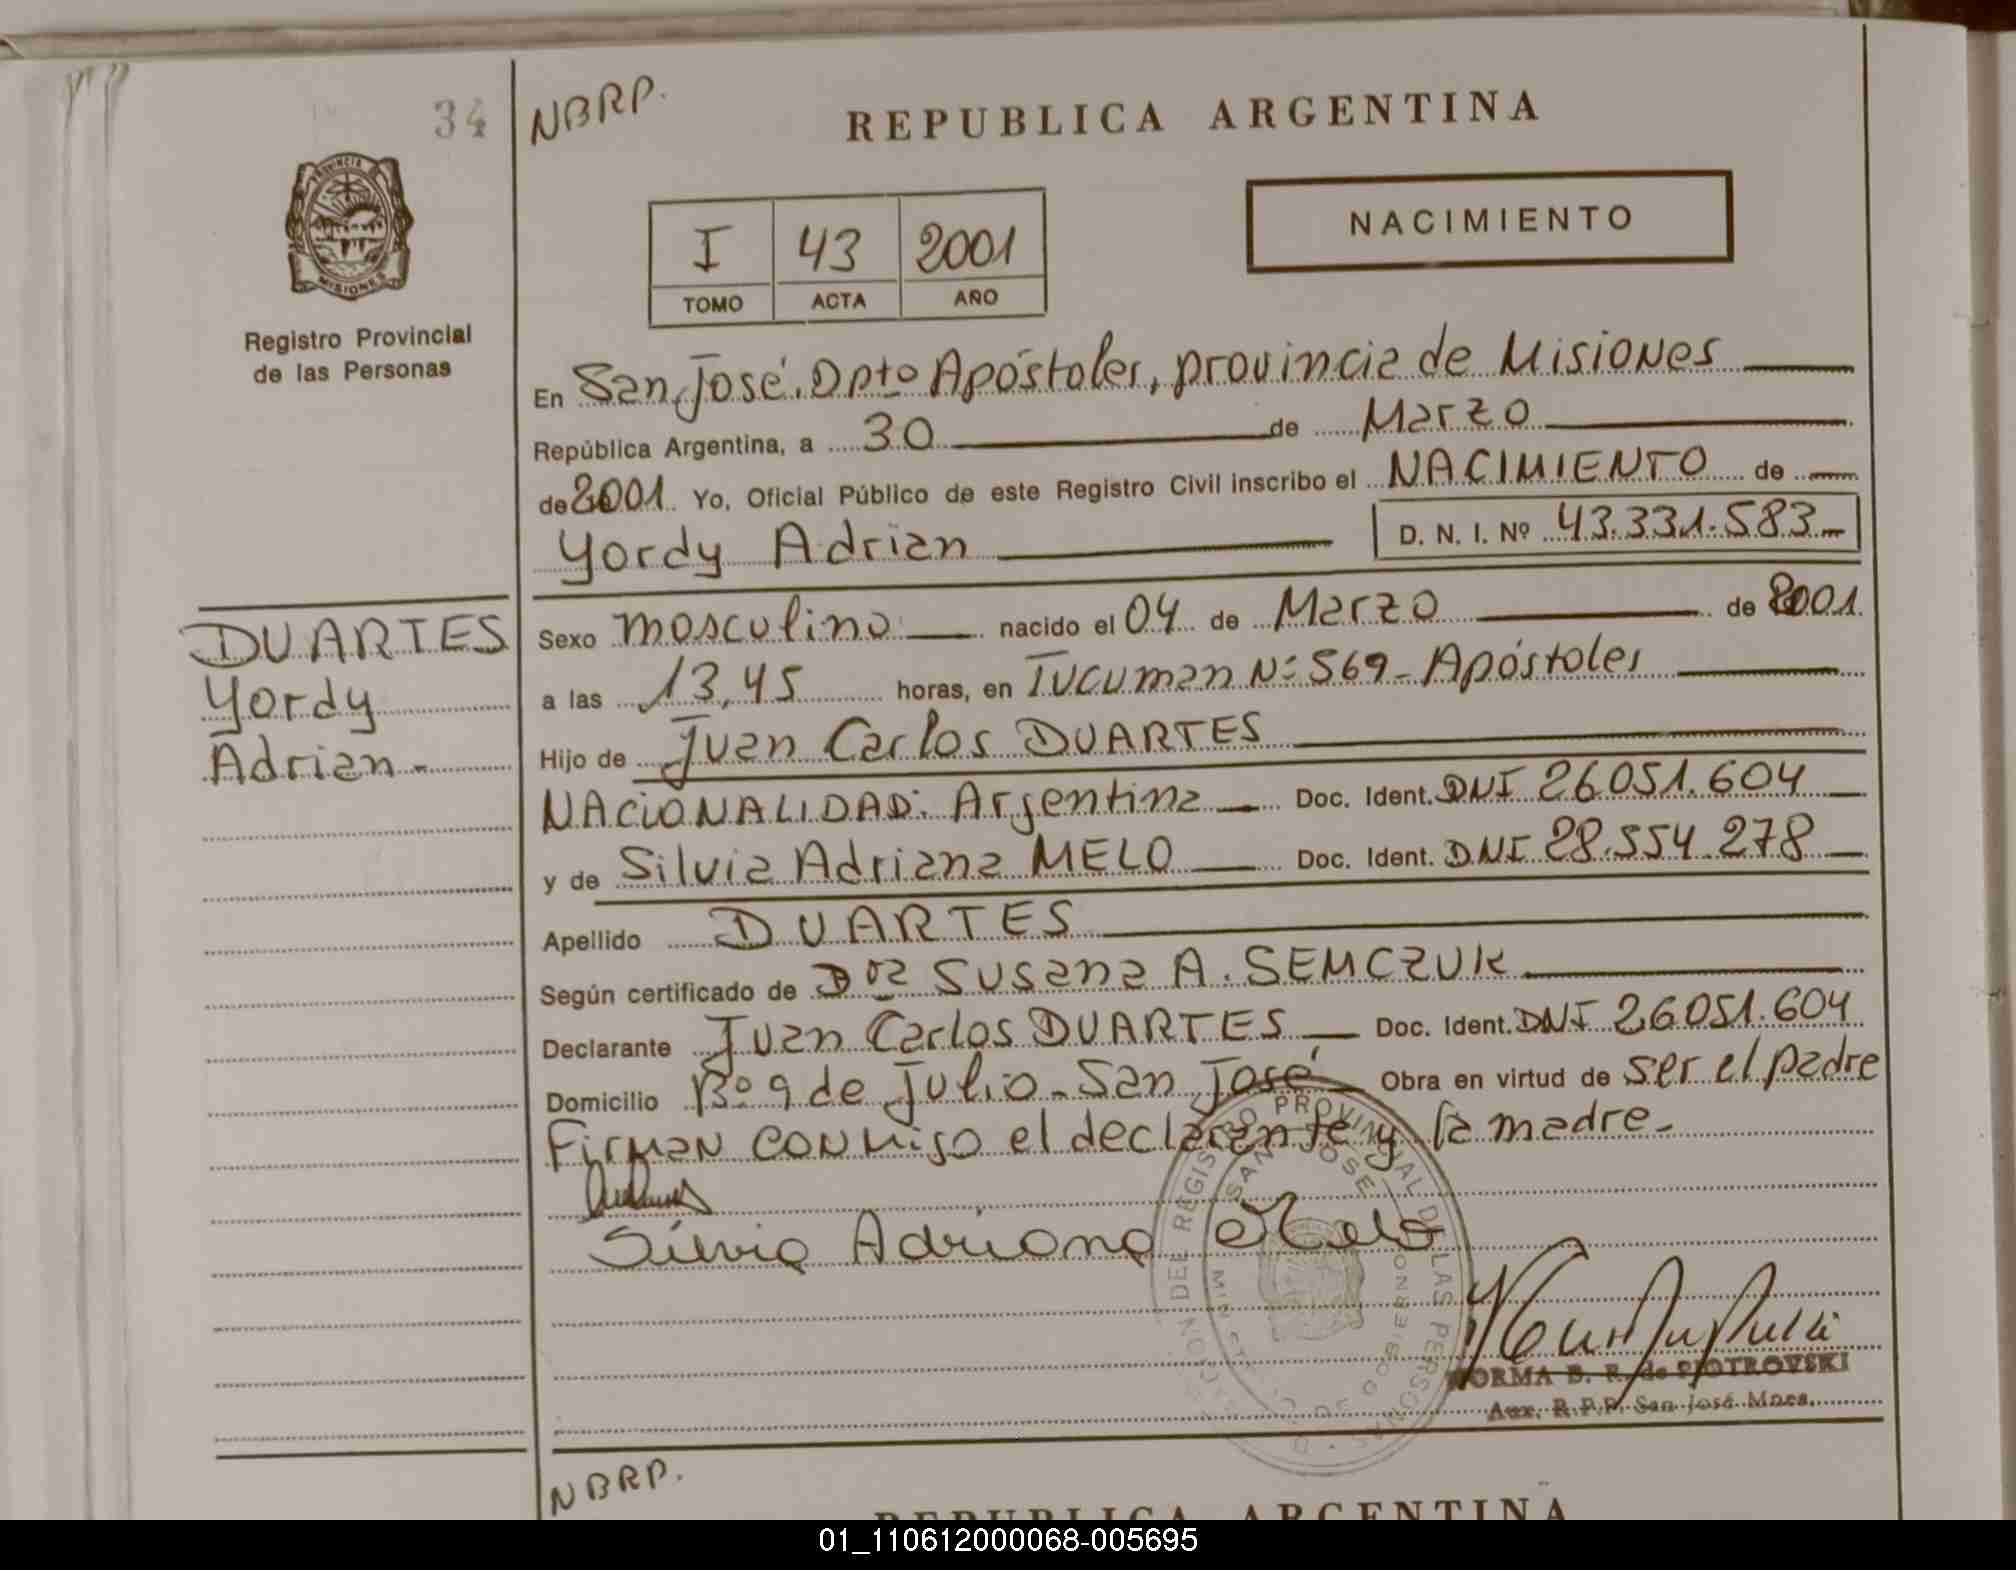 34
NBRP.
REPUBLICA ARGENTINA
PROVINCIA
MISIONES
Registro Provincial
de las Personas
I 43 2001
TOMO ACTA AÑO
NACIMIENTO
En San José. Dpto Apóstoles, provincia de Misiones
República Argentina, a 30 de Marzo
de 2001. Yo, Oficial Público de este Registro Civil inscribo el NACIMIENTO de
Yordy Adrian D. N. I. Nº 43.331.583
DUARTES
Yordy
Adrian-
Sexo mosculino nacido el 04 de Marzo de 2001.
a las 13,45 horas, en Tucuman Nº 569-Apóstoles
Hijo de Juan Carlos DUARTES
NACIONALIDAD: Argentina Doc. Ident. DNI 26.051.604
y de Silvia Adriana MELO Doc. Ident. DNI 28.554.278
Apellido DUARTES
Según certificado de Dra Susana A. SEMCZUK
Declarante Juan Carlos DUARTES Doc. Ident. DNI 26.051.604
Domicilio Bº 9 de Julio-San José Obra en virtud de ser el padre
Firman conmigo el declarante y la madre-
Silvia Adriana Melo
REGISTRO PROVINCIAL DE LAS PERSONAS
SAN JOSE
NORMA B. R. de PIOTROVSKI
Aux. R.P.P. San José Mnes.
NBRP.
REPUBLICA ARGENTINA
01_110612000068-005695